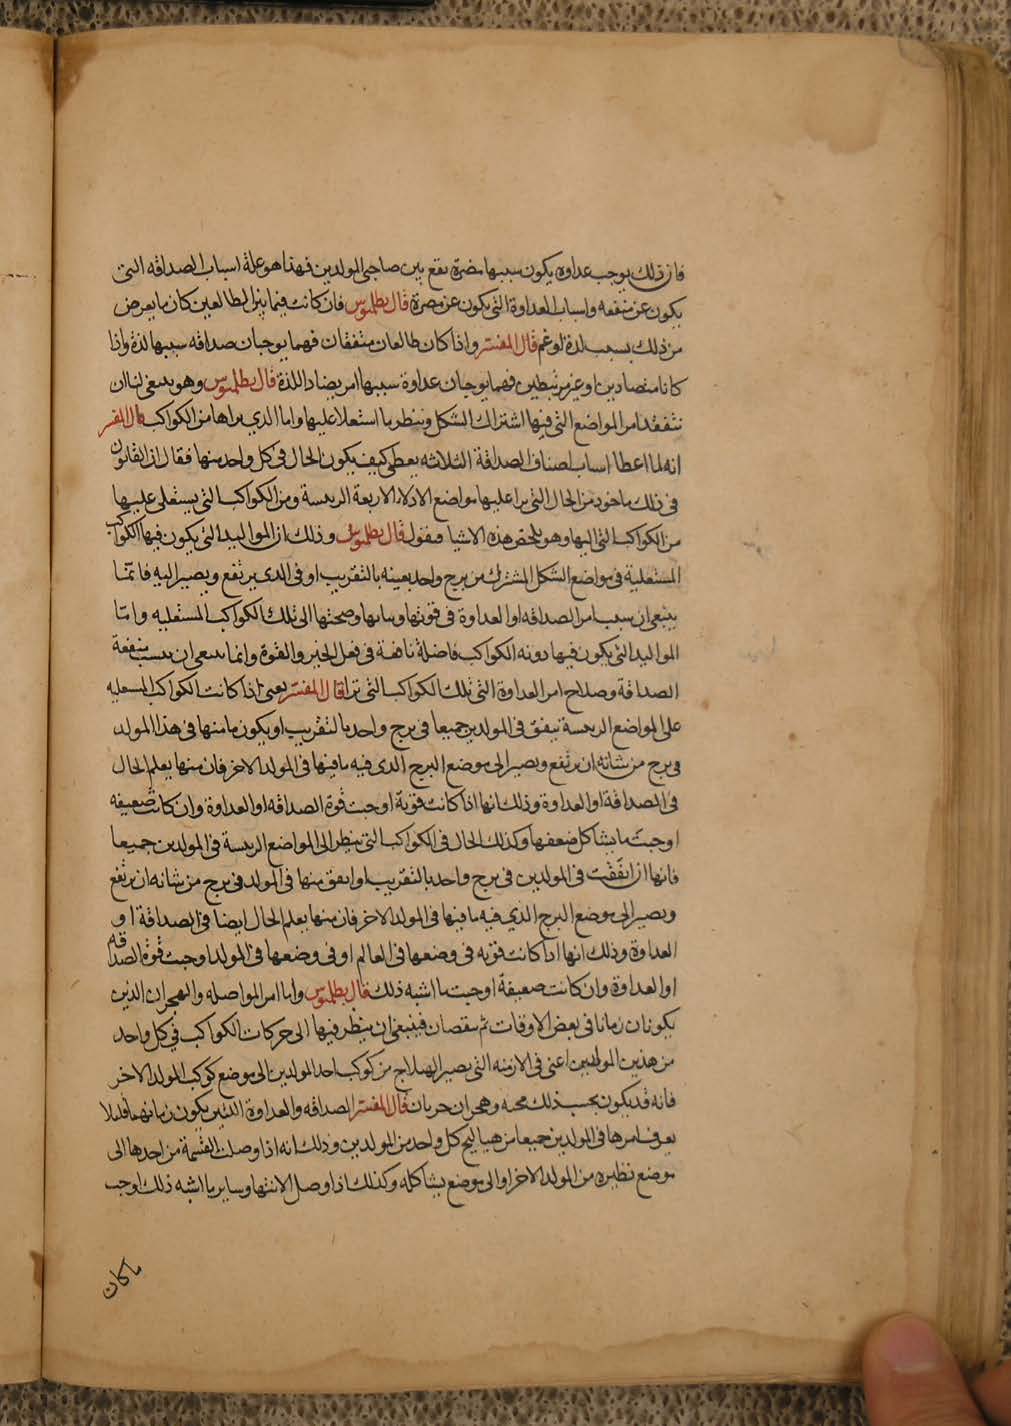 فان ذلك يوجب عداوه يكون سببها مضرة تقع بين صاحبى المولدين فهذا هو علة اسباب الصداقه التى
يكون عن منفعه واسباب العداوة التى يكون عن مضرة قال بطلميوس فان كانت فيما بين الطالعين كان ما يعرض
من ذلك بسبب لذة او غم قال المفسر واذا كان طالعان متفقان فهما يوجبان صداقه سببها لذة واذا
كانا متضادين او غير مرتبطين فهما يوجبان عداوة سببها امر يضاد اللذة قال بطلميوس وهو ينبغى لنا ان
نتفقد امر المواضع التى فيها اشتراك الشكل وننظر ما استعلا عليها واما الذي يراها من الكواكب قال المفسر
انه لما اعطا اسباب اصناف الصداقة الثلاثه يعطى كيف يكون الحال فى كل واحد منها فقال ان القانون
فى ذلك ماخوذ من الحال التى يرا عليها مواضع الادلاء الاربعة الرييسة ومن الكواكب التى يستعلى عليها
من الكواكب التى اليها وهو يلخص هذه الاشيا فيقول قال بطلميوس وذلك ان المواليد التى يكون فيها الكواكب
المستعلية فى مواضع الشكل المشترك من برج واحد بعينه بالتقريب او فى الذى يرتفع ويصير اليه فانما
ينبغى ان سبب امر الصداقه او العداوة فى قوتها وثباتها وصحتها الى تلك الكواكب المستعليه واما
المواليد التى يكون فيها دونه الكواكب فاضلة نافعة فى فعل الخير والقوة وانما ينبغى ان ينسب منفعة
الصداقة وصلاح امر العداوة التى تلك الكواكب التى ترا قال المفسر يعنى اذا كانت الكواكب المستعليه
على المواضع الرييسة يتفق فى المولدين جميعا فى برج واحد بالتقريب او يكون ما منها فى هذا المولد
فى برج من شانه ان يرتفع ويصير الى موضع البرج الذى فيه ما فيها فى المولد الاخر فان منها يعلم الحال
فى الصداقة او العداوة وذلك انها اذا كانت قوية اوجبت قوة الصداقه او العداوة وان كانت ضعيفه
اوجبت ما يشاكل ضعفها وكذلك الحال فى الكواكب التى ينظر الى المواضع الرييسة فى المولدين جميعا
فانها ان اتفقت فى المولدين فى برج واحد بالتقريب او اتفق منها فى المولد فى برج من شانه ان يرتفع
ويصير الى موضع البرج الذي فيه ما فيها فى المولد الاخر فان منها يعلم الحال ايضا فى الصداقة او
العداوة وذلك انها اذا كانت قويه فى وضعها فى العالم او فى وضعها فى المولد اوجبت قوة الصداقه
او العداوة وان كانت ضعيفة اوجبت ما اشبه ذلك قال بطلميوس واما امر المواصله والهجران الذين
يكونان زمانا فى بعض الاوقات ثم ينقصان فينبغى ان ينظر فيها الى حركات الكواكب في كل واحد
من هذين المولدين اعنى فى الازمنه التى يصير الهيلاج من كوكب احد المولدين الى موضع كوكب المولد الاخر
فانه قد يكون بحسب ذلك محبه وهجران حربان قال المفسر الصداقه والعداوة اللذين يكون زمانهما قليلا
يعرف امرها فى المولدين جميعا من هياليج كل واحد من المولدين وذلك انه اذا وصلت القسمة من احدها الى
موضع نظيره من المولد الاخر او الى موضع يشاكله وكذلك اذا وصل الانتها وساير ما اشبه ذلك اوجب
ما كان